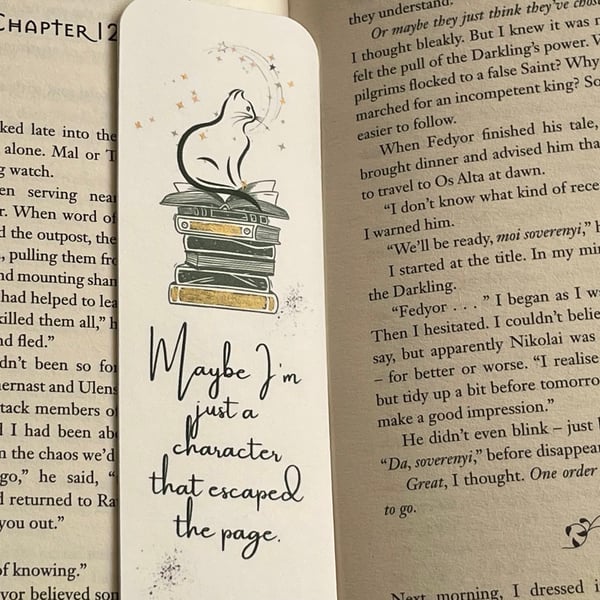 CHAPTER 12
ked late into the
alone. Mal or
g watch.
en serving near
r. When word of
d the outpost, the
, pulling them
nd mounting
had helped to
killed them all,” h
nd fled.”
dn’t been so for
ernast and Ulens
tack members of
I had been
n the chaos we’d
go,” he said, “
d returned to
you out.”
of knowing.”
vor believed son
Maybe I’m
just a
character
that escaped
the page.
they understand.
Or maybe they just think they’ve chos
I thought bleakly. But I knew it was
felt the pull of the Darkling’s power. W
pilgrims flocked to a false Saint? Why
marched for an incompetent king? So
easier to follow.
When Fedyor finished his tale,
brought dinner and advised him tha
to travel to Os Alta at dawn.
“I don’t know what kind of rece
I warned him.
“We’ll be ready, moi soverenyi,” h
I started at the title. In my min
the Darkling.
“Fedyor . . . ” I began as I wa
Then I hesitated. I couldn’t belie
say, but apparently Nikolai was
– for better or worse. “I realise
but tidy up a bit before tomorro
make a good impression.”
He didn’t even blink – just
“Da, soverenyi,” before disappear
Great, I thought. One order
to go.
Next morning, I dressed i